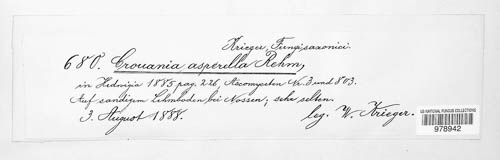 Krieger, Fungi saxonici.
680. Crouania asperella Rehm,
in Hedwigia 1885 pag. 226, Ascomyceten Nr. 3 und 803.
Auf sandigem Lehmboden bei Nossen; sehr selten.
3. August 1888. leg. W. Krieger.
US NATIONAL FUNGUS COLLECTIONS
978942